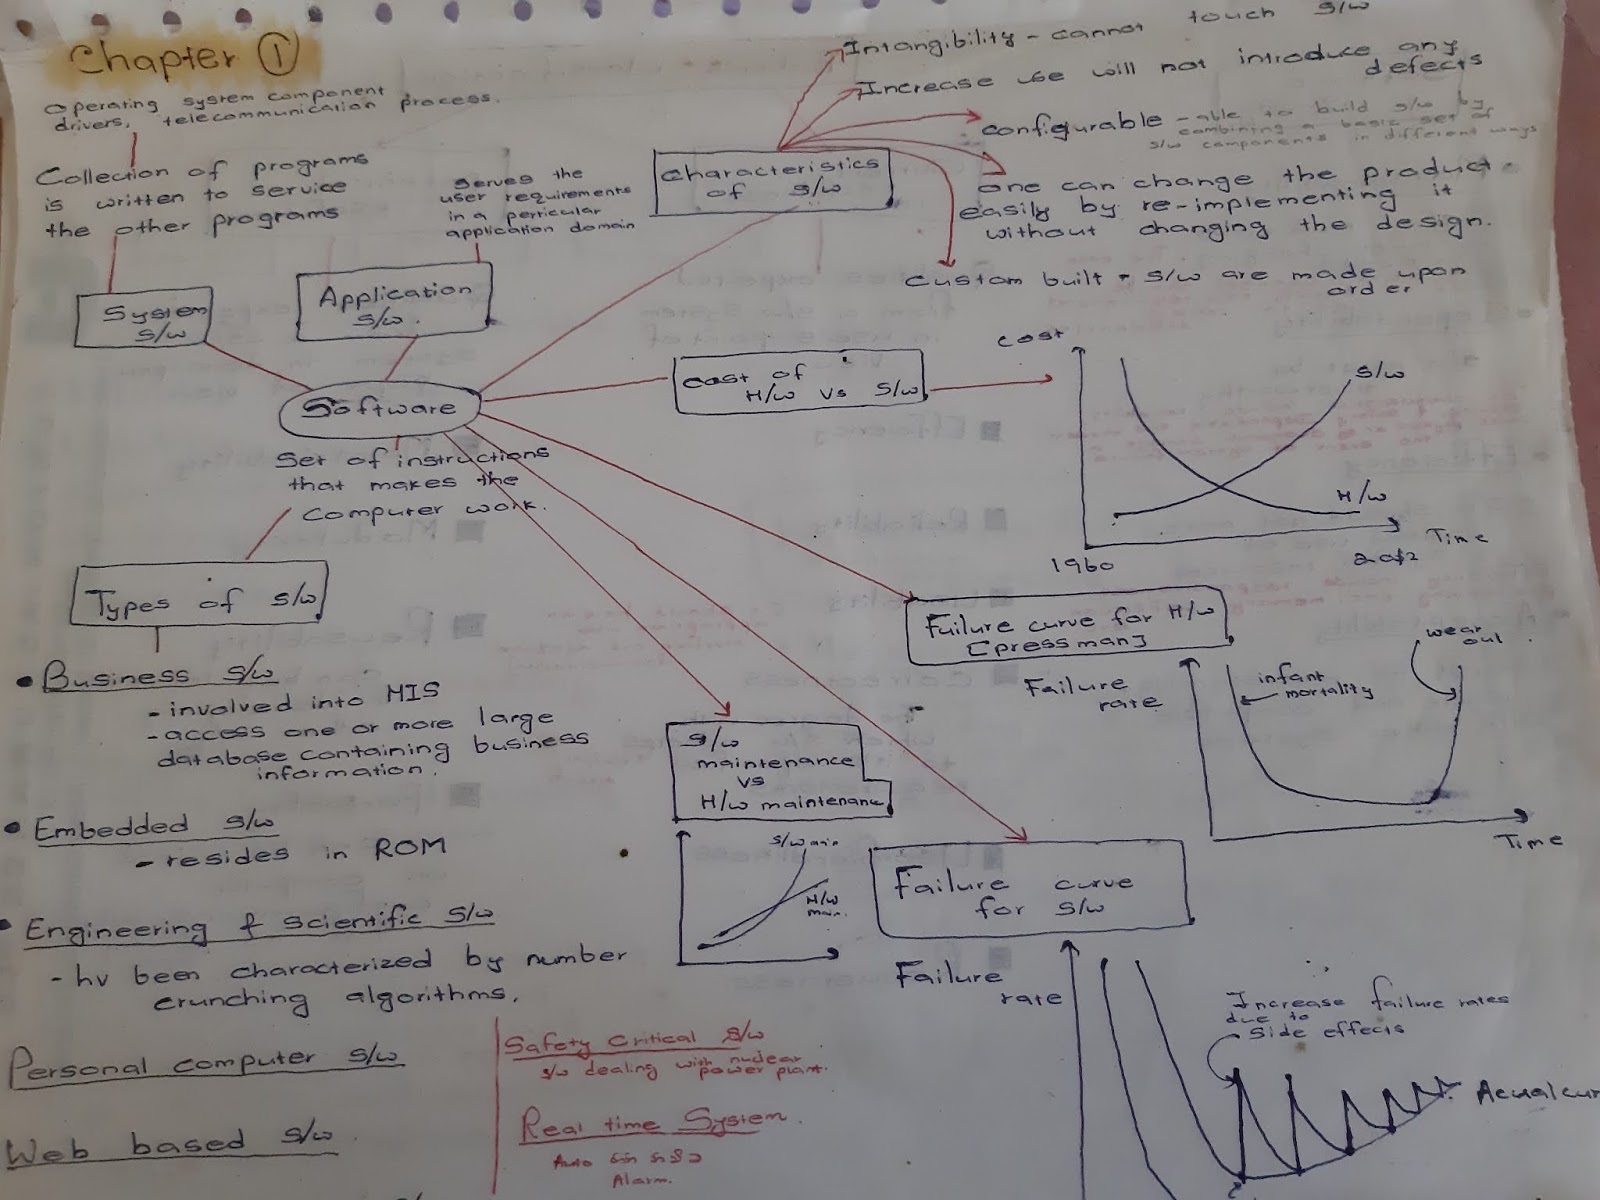 Chapter ①
Operating system component
drivers, telecommunication process.
Collection of programs
is written to service
the other programs
System
S/w
serves the
user requirements
in a perticular
application domain
Application
S/w.
Characteristics
of S/w
Intangibility - cannot touch S/w
Increase use will not introduce any
defects
configurable - able to build S/w by
combining a basic set of
S/w components in different ways
one can change the product
easily by re-implementing it
without changing the design.
Custom built - S/w are made upon
order.
Software
Set of instructions
that makes the
computer work.
Cost of
H/w vs S/w
Cost
S/w
H/w
Time
1960
Failure curve for H/w
[pressman]
Failure
rate
infant
mortality
wear
out
Time
Types of S/w
• Business S/w
- involved into MIS
- access one or more large
database containing business
information.
• Embedded S/w
- resides in ROM
• Engineering & Scientific S/w
- hv been characterized by number
crunching algorithms.
Personal computer S/w
Web based S/w
Safety Critical S/w
S/w dealing with nuclear
power plant.
Real time System
Alarm.
S/w
maintenance
vs
H/w maintenance
S/w main
H/w
main.
Failure curve
for S/w
Failure
rate
Increase failure rates
due to
side effects